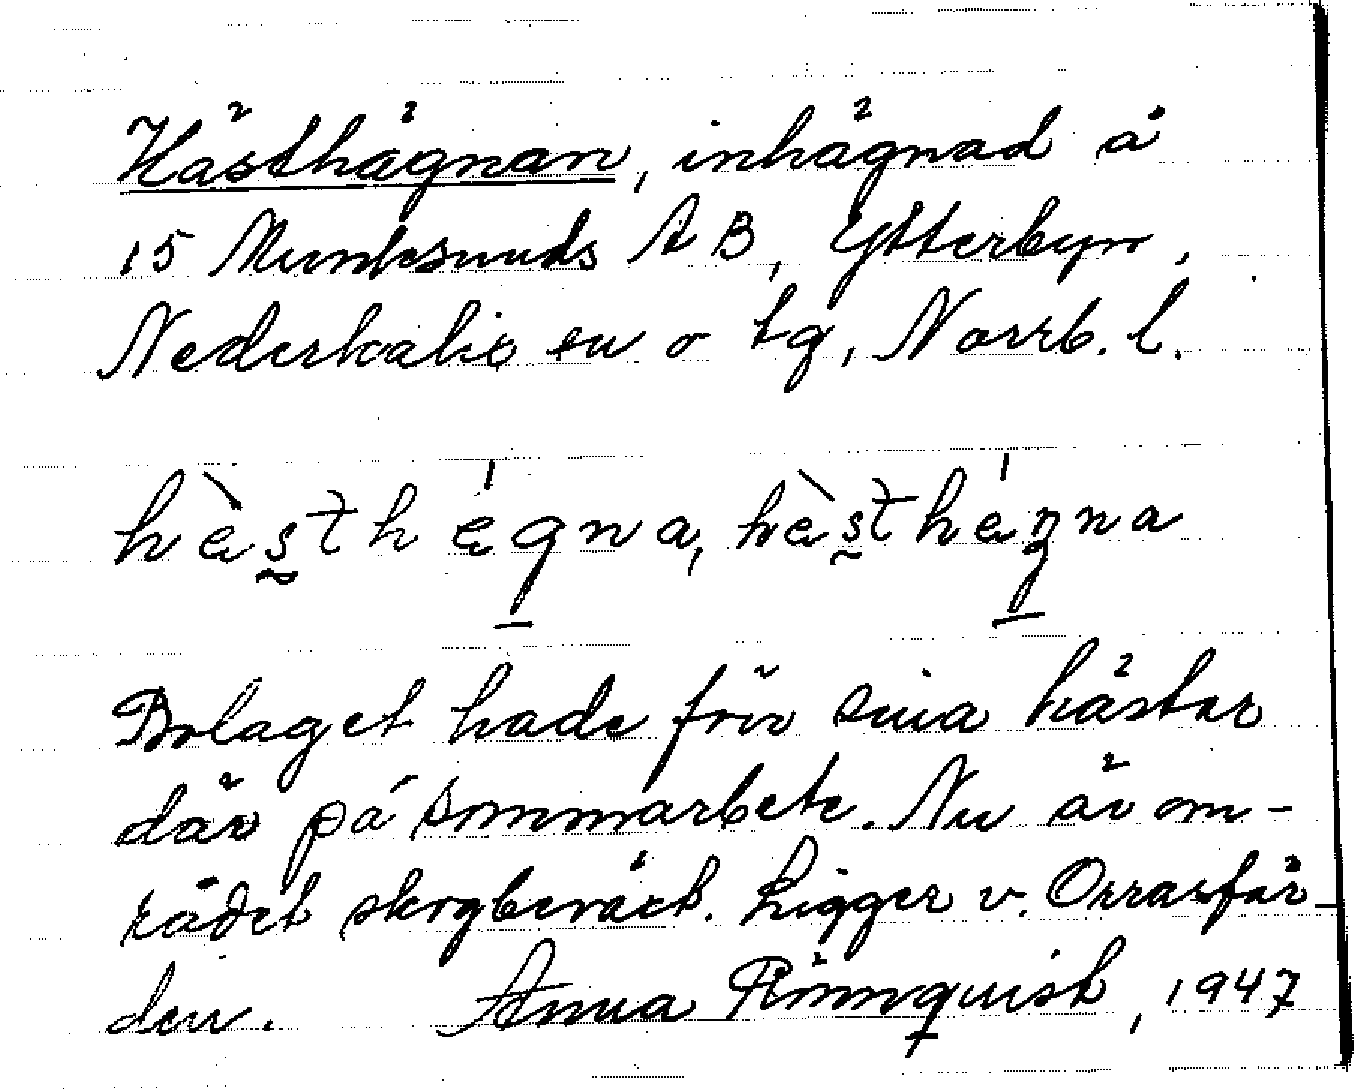 Hästhägnan, inhägnad å
15 Munksunds AB, Ytterbyn,
Nederkalix sn o tg, Norrb. l.
hèsthégna, hèsthéŋna
Bolaget hade förr sina hästar
där på sommarbete. Nu är om-
rådet skogbeväxt. Ligger v. Orrarsfär-
den. Anna Rönnquist, 1947